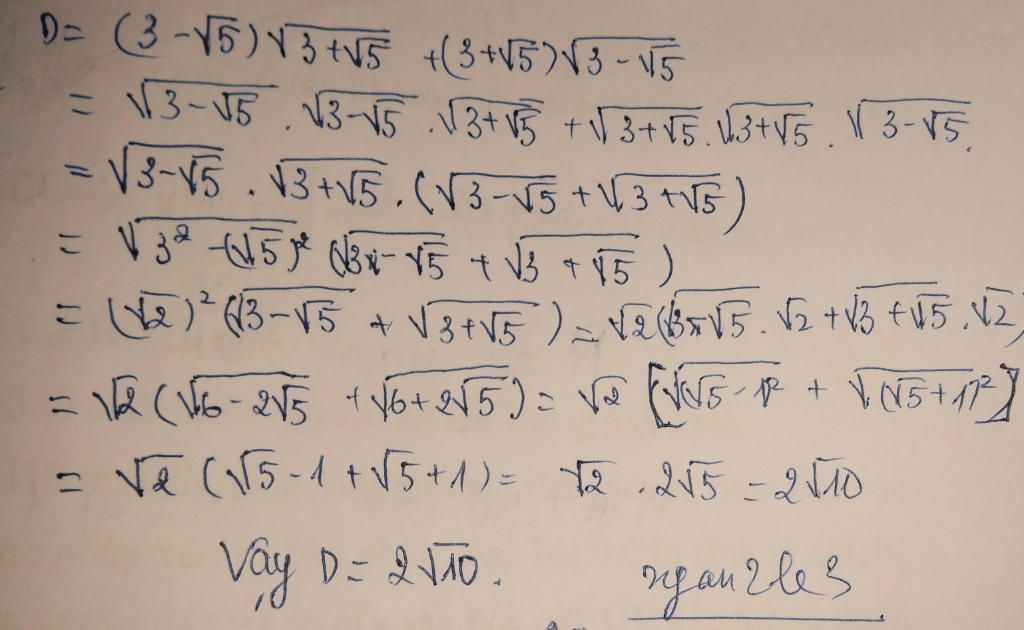 D= (3-√5)√(3+√5) +(3+√5)√(3-√5)
= √(3-√5) . √(3-√5) . √(3+√5) + √(3+√5) . √(3+√5) . √(3-√5).
= √(3-√5) . √(3+√5) . (√(3-√5) + √(3+√5))
= √(3² -(√5)²) (√(3-√5) + √(3+√5))
= (√2)² (√(3-√5) + √(3+√5)) = √2(√(3-√5) . √2 + √(3+√5) . √2)
= √2 (√(6-2√5) + √(6+2√5)) = √2 [√((√5-1)²) + √((√5+1)²)]
= √2 (√5-1+√5+1) = √2 . 2√5 = 2√10
Vậy D= 2√10.